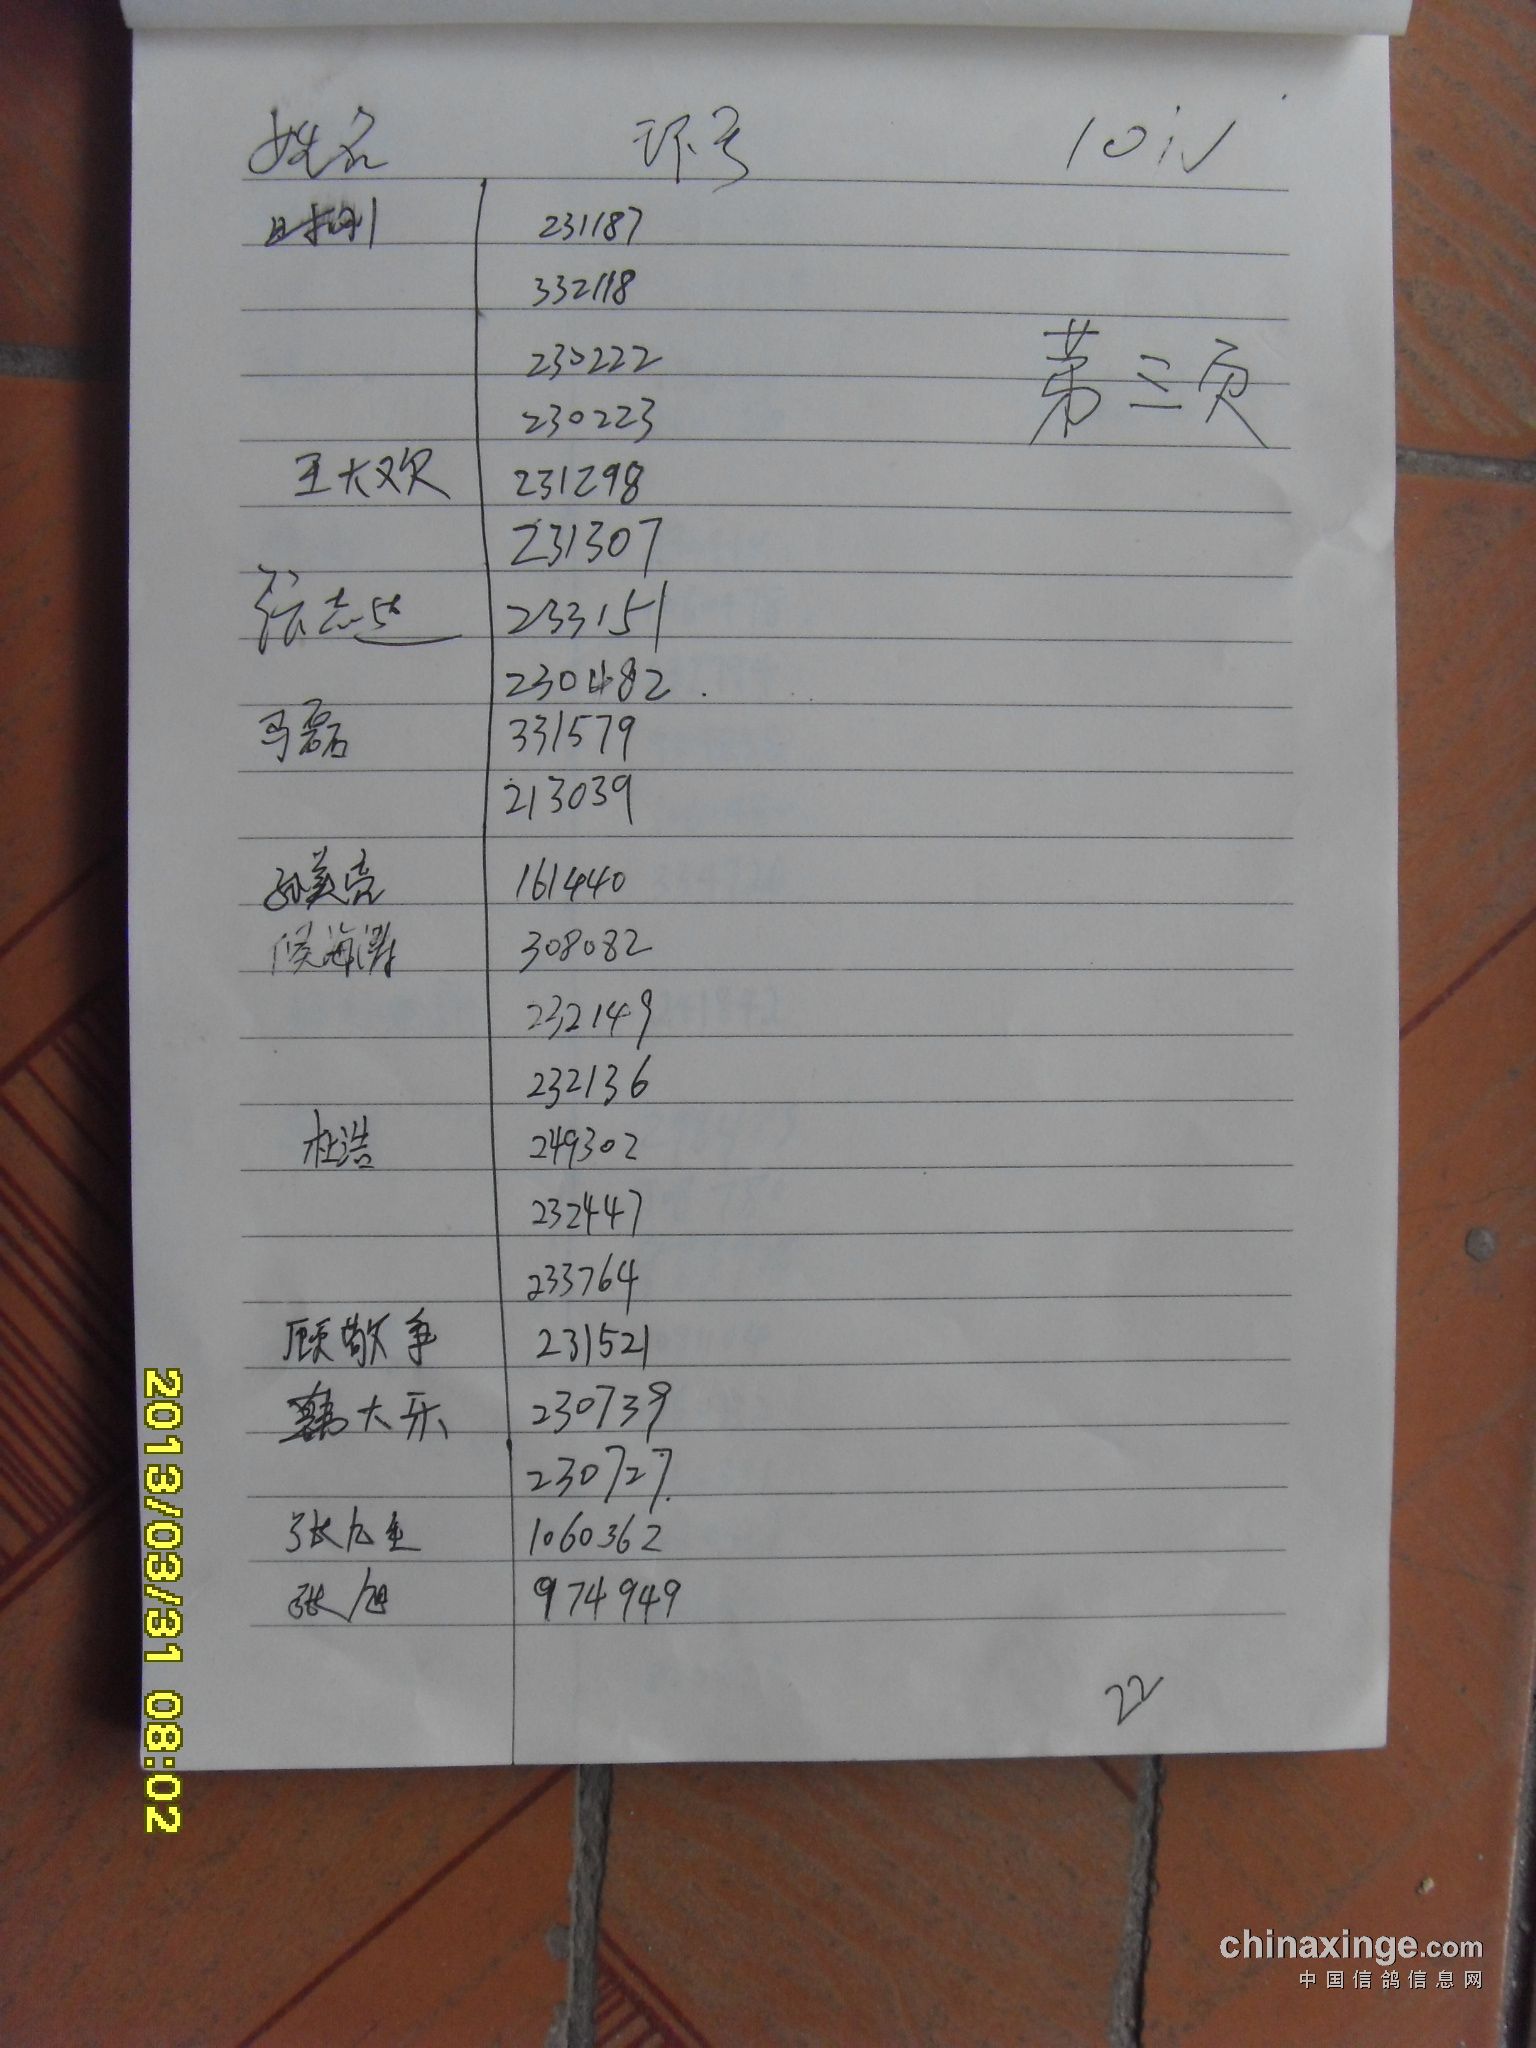 姓名 环号
231187
332118
230222
第三页
230223
王大欢 231298
231307
张志 233151
230482
马磊 331579
213039
孙美亮 161440
侯海涛 308082
232149
232136
杜浩 249302
232447
233764
顾敬争 231521
韩大乐 230739
230727
张 1060362
张旭 974949
22
2013/03/31 08:02
chinaxinge.com
中国信鸽信息网